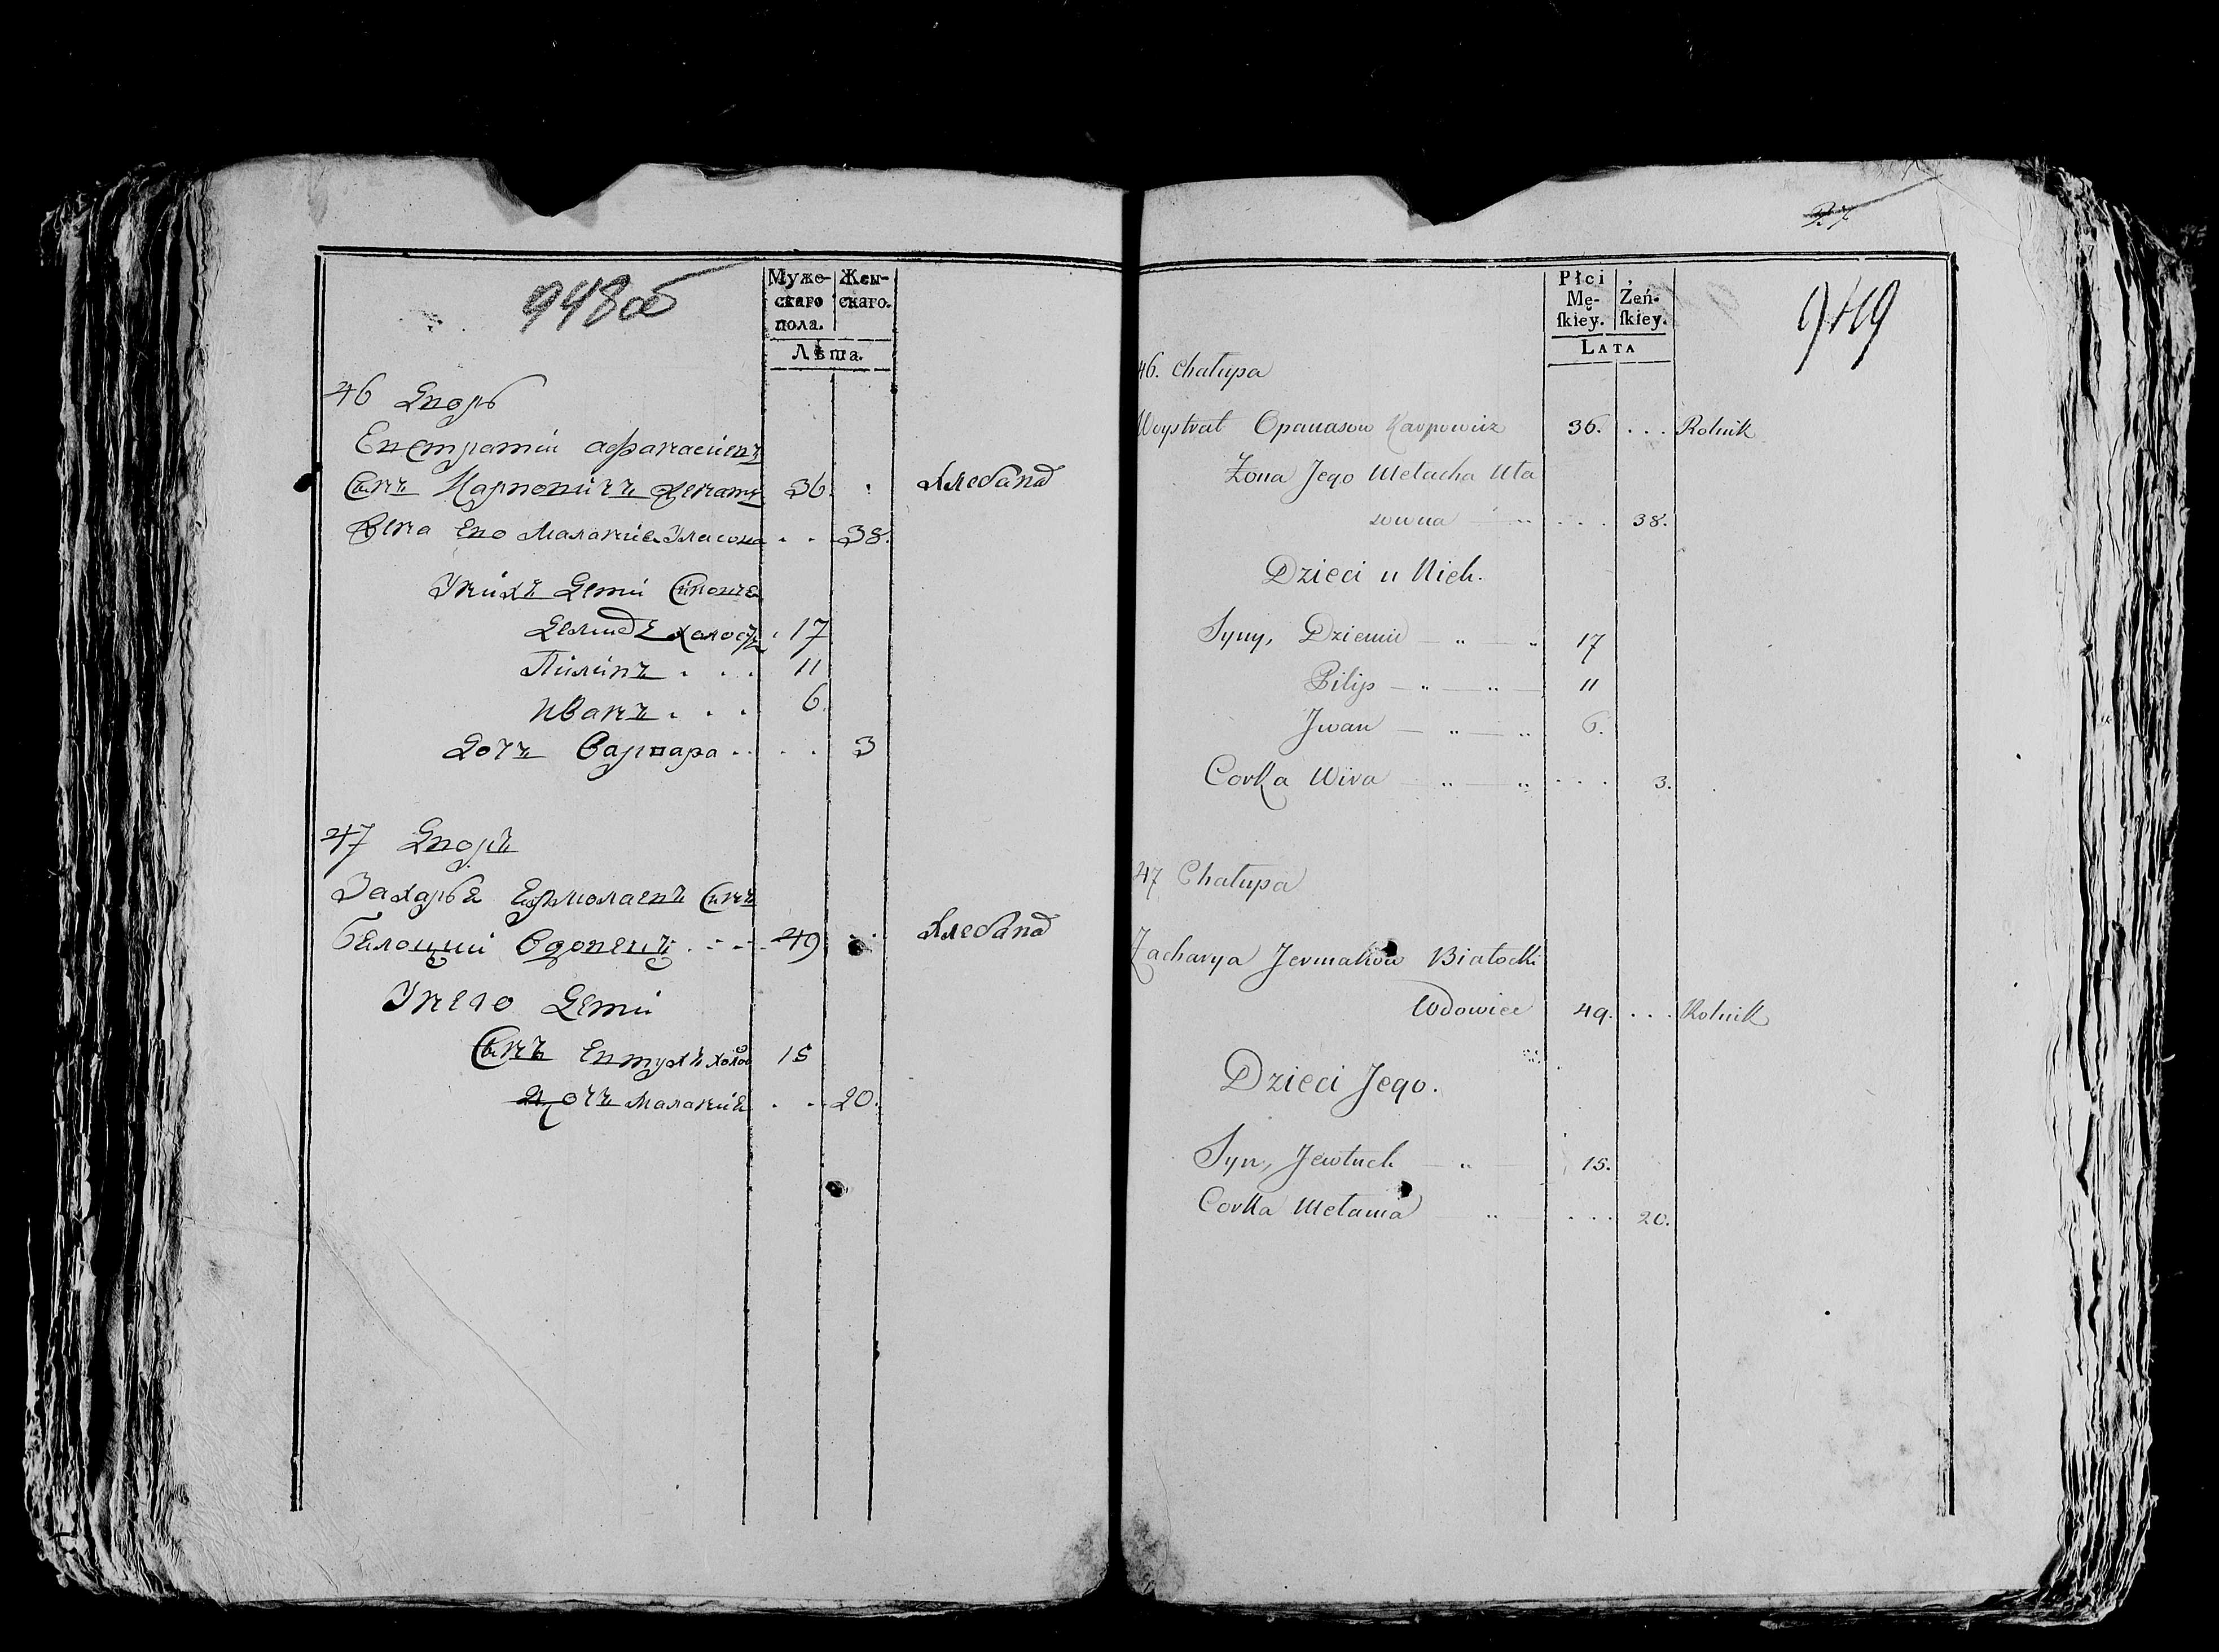 948об
Муже-
скаго
пола.
Жен-
скаго.
Лѣта.
46 Дворъ
Евстратій Афанасіевъ
Сынъ Карповичъ женатъ 36. . Хлебопа
Жена Его Маланія Уласова . . 38.
У нихъ Дети Сыновя
Демидъ холостъ . 17
Пилипъ . . . 11
Иванъ . . . 6.
Дочь Варвара . . . . 3
47 Дворъ
Захарья Ермолаевъ Сынъ
Белоцкий Вдовецъ . - - - 49 Хлебопа
У него Дети
Сынъ Евтухъ холос 15
Дочь Маланія . . - 20.
27
949
Płci
Mę-
ſkiey.
Żeń-
ſkiey.
LATA
46. Chałupa
Woystrat Opanasow Karpowicz 36. . . . Rolnik
Żona Jego Melacha Uła
sowna . . . 38.
Dzieci u Nich.
Syny, Dziemid — „ — „ 17
Pilip — „ — „ — 11
Jwan — „ — „ 6.
Corka Wiva — „ — „ . . . 3.
47 Chałupa
Zacharya Jermakow Białocki
Wdowiec 49. . . . Rolnik
Dzieci Jego.
Syn, Jewtuch — „ — 15.
Corka Melania — „ — . . . 20.